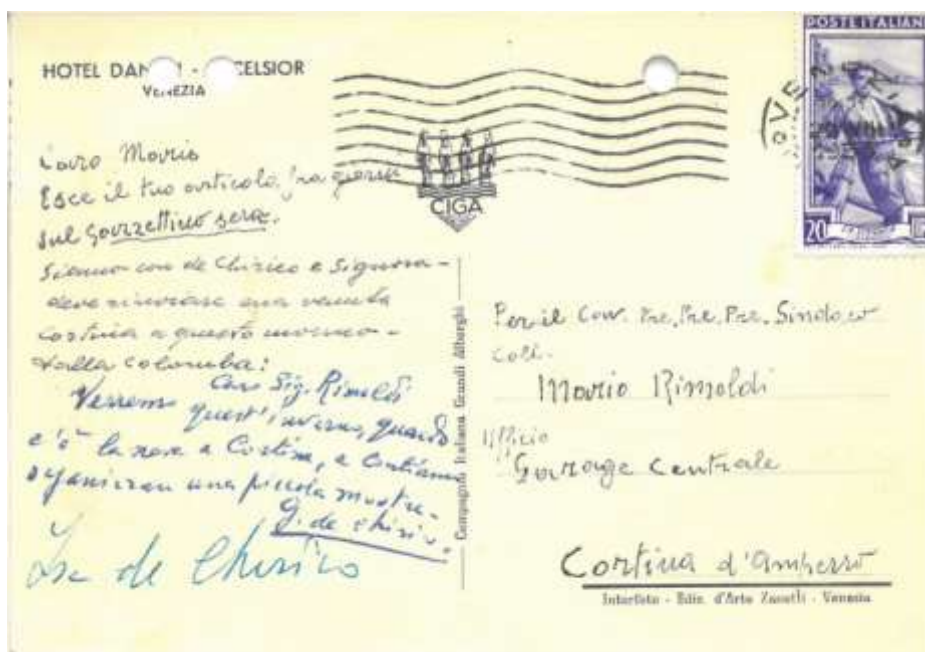 HOTEL DAN I - CELSIOR
VENEZIA
Caro Mario
Esce il tuo articolo fra giorni
sul Gazzettino sera.
Siamo con de Chirico e Signora -
deve rinviare sua venuta
Cortina a questo inverno -
dalla Colomba:
Caro Sig. Rimoldi
Verremo quest'inverno, quando
c'è la neve a Cortina, e contiamo
organizzare una piccola mostra.
G. de Chirico.
Isa de Chirico
CIGA
POSTE ITALIANE
20
Compagnia Italiana Grandi Alberghi
Per il Cav. Pre. Pre. Pre. Sindaco
Coll.
Mario Rimoldi
Ufficio
Garage Centrale
Cortina d'Ampezzo
Interfoto - Ediz. d'Arte Zanetti - Venezia